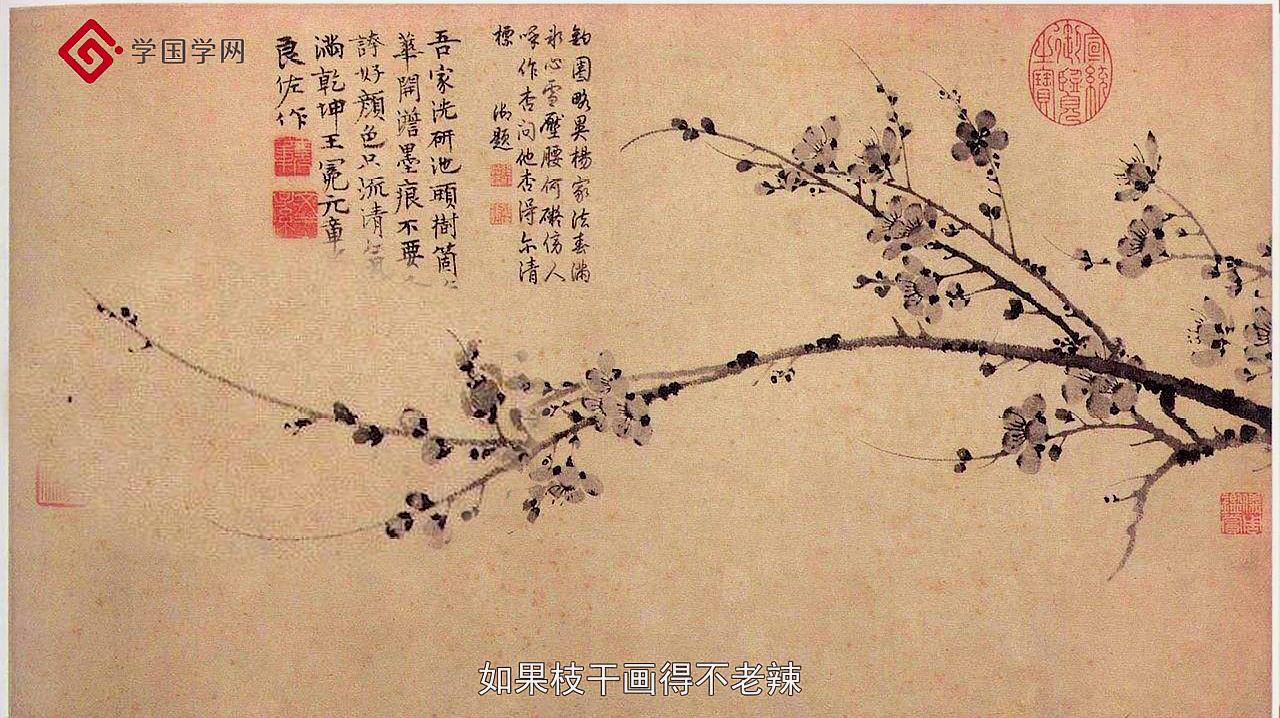 学国学网
宣統御覽之寶
鈎圈略異楊家法春滿
氷心雪壓腰何礙仿人
呼作杏問他杏得尔清
標 御題
吾家洗研池頭樹箇
華開澹墨痕不要
誇好顏色只流清氣
滿乾坤王冕元章
良佐作
如果枝干画得不老辣